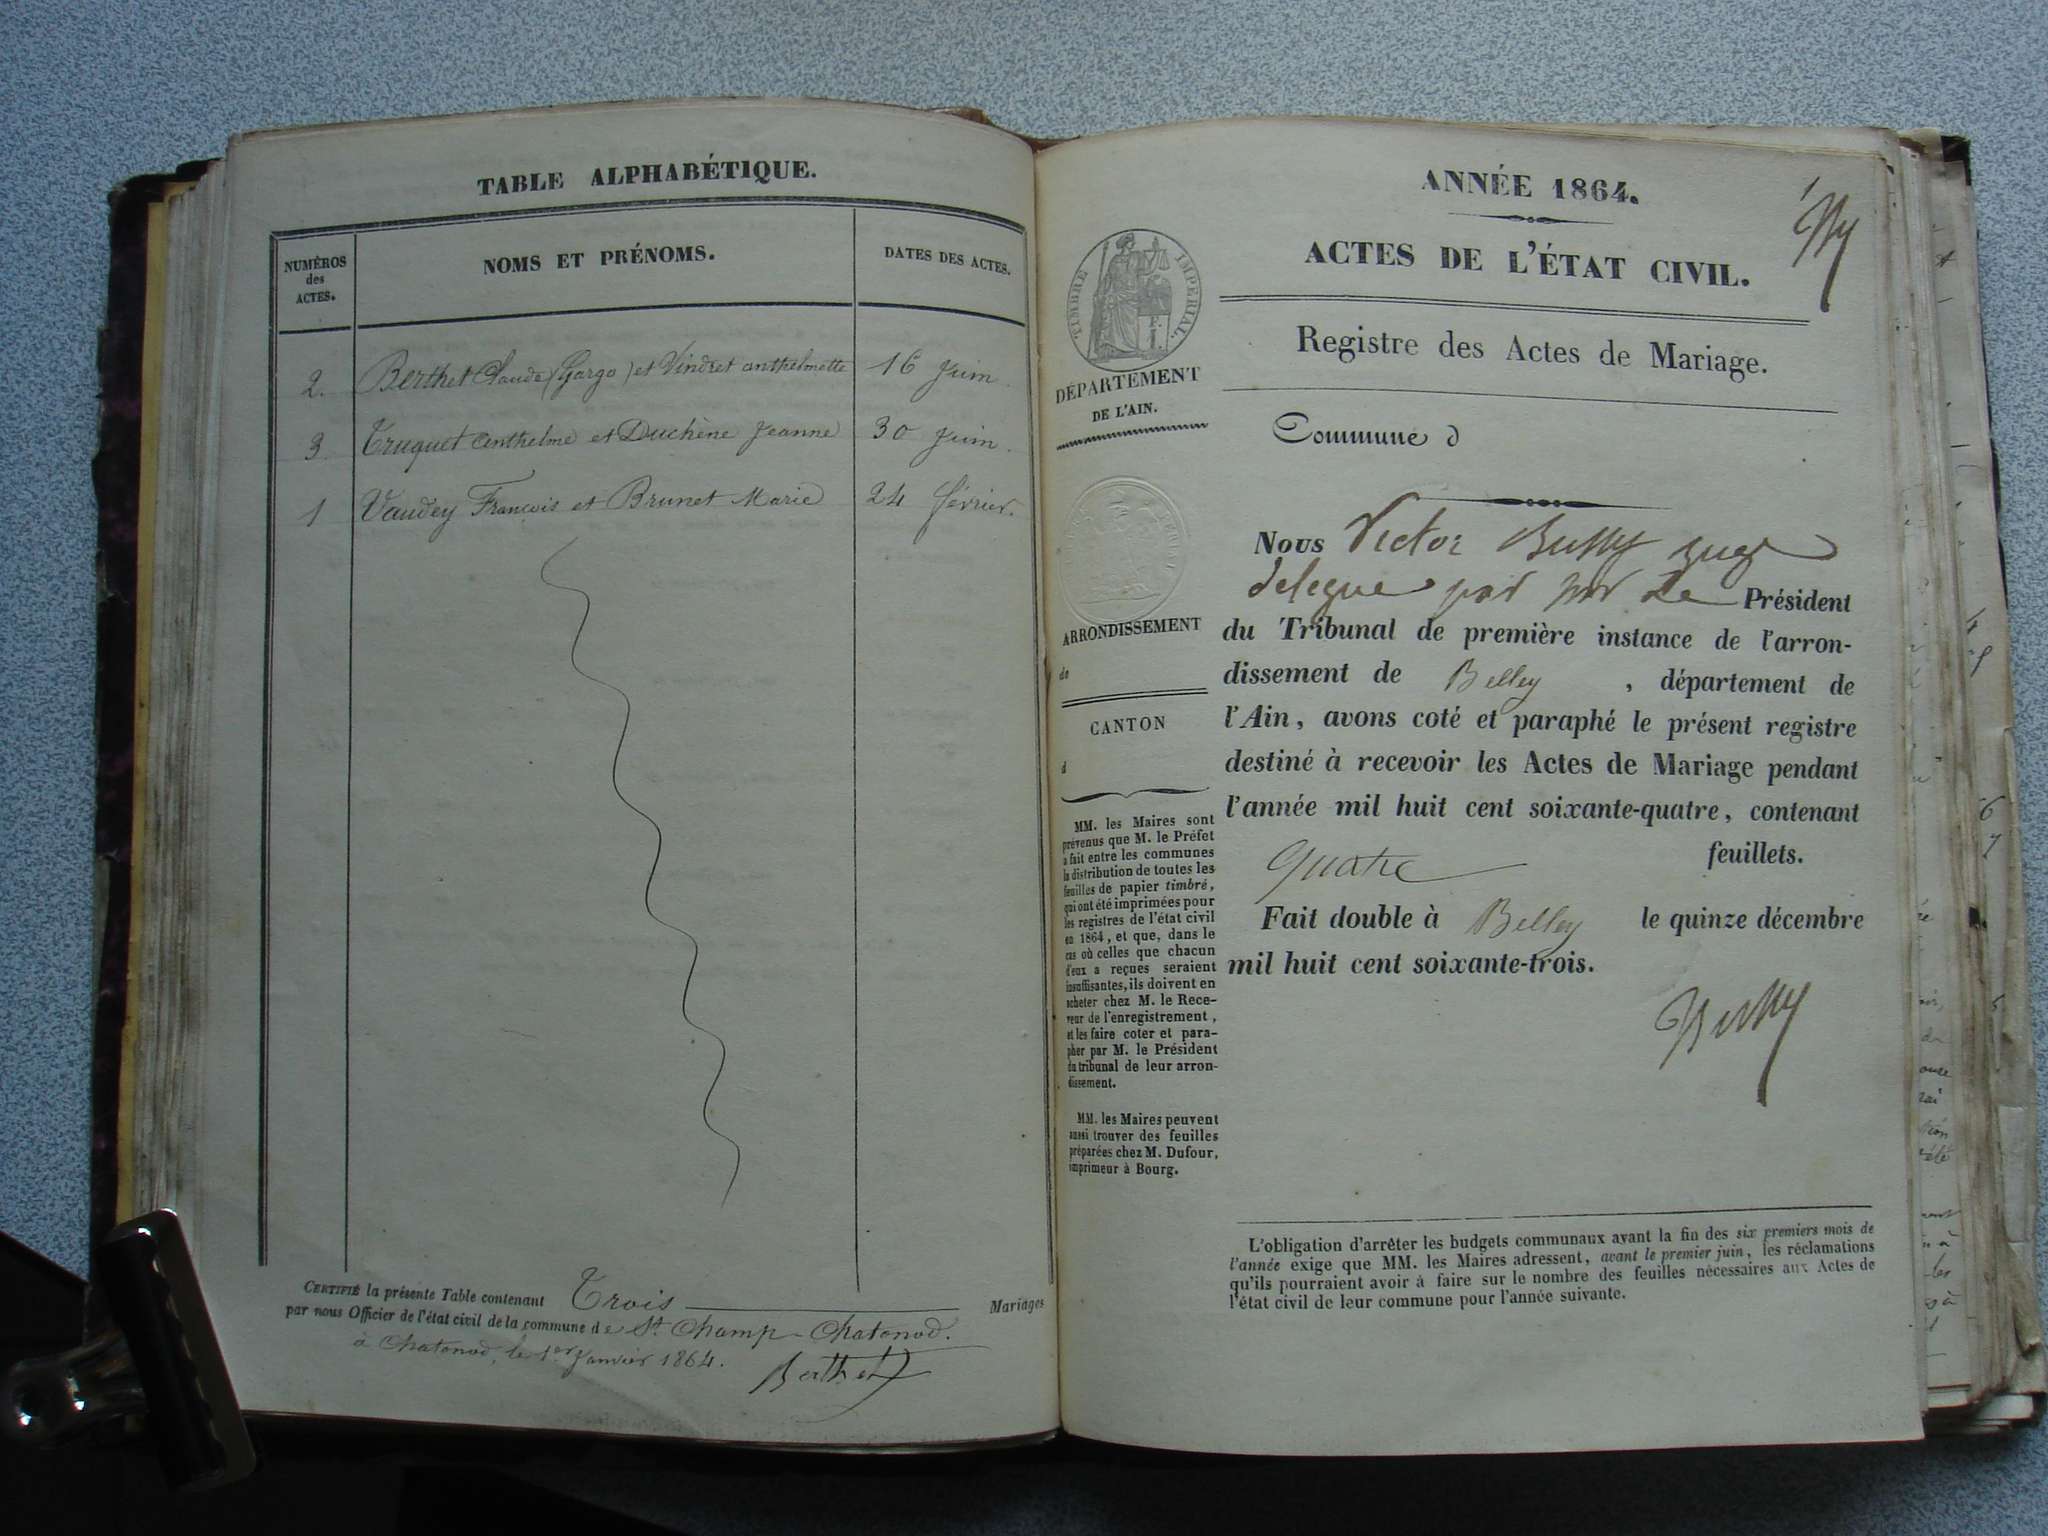 TABLE ALPHABÉTIQUE.
NUMÉROS
des
ACTES.
NOMS ET PRÉNOMS.
DATES DES ACTES.
2. Berthet Claude (Gorgo) et Vindret anthelmette 16 Juin.
3 Truquet Anthelme et Duchêne Jeanne 30 Juin.
1 Vaudey François et Brunet Marie 24 février.
CERTIFIÉ la présente Table contenant Trois Mariages
par nous Officier de l'état civil de la commune de St. Champ-Chatonod.
à Chatonod, le 1er Janvier 1864.
Berthet
ANNÉE 1864.
ACTES DE L'ÉTAT CIVIL.
Registre des Actes de Mariage.
Commune d
TIMBRE IMPÉRIAL.
DÉPARTEMENT
DE L'AIN.
ARRONDISSEMENT
de
CANTON
d
MM. les Maires sont
prévenus que M. le Préfet
a fait entre les communes
la distribution de toutes les
feuilles de papier timbré,
qui ont été imprimées pour
les registres de l'état civil
en 1864, et que, dans le
cas où celles que chacun
d'eux a reçues seraient
insuffisantes, ils doivent en
acheter chez M. le Rece-
veur de l'enregistrement,
et les faire coter et para-
pher par M. le Président
du tribunal de leur arron-
dissement.
MM. les Maires peuvent
aussi trouver des feuilles
préparées chez M. Dufour,
imprimeur à Bourg.
Nous Victor Bussy juge
delegue par Mr Le Président
du Tribunal de première instance de l'arron-
dissement de Belley, département de
l'Ain, avons coté et paraphé le présent registre
destiné à recevoir les Actes de Mariage pendant
l'année mil huit cent soixante-quatre, contenant
quatre feuillets.
Fait double à Belley le quinze décembre
mil huit cent soixante-trois.
Bussy
L'obligation d'arrêter les budgets communaux avant la fin des six premiers mois de
l'année exige que MM. les Maires adressent, avant le premier juin, les réclamations
qu'ils pourraient avoir à faire sur le nombre des feuilles nécessaires aux Actes de
l'état civil de leur commune pour l'année suivante.